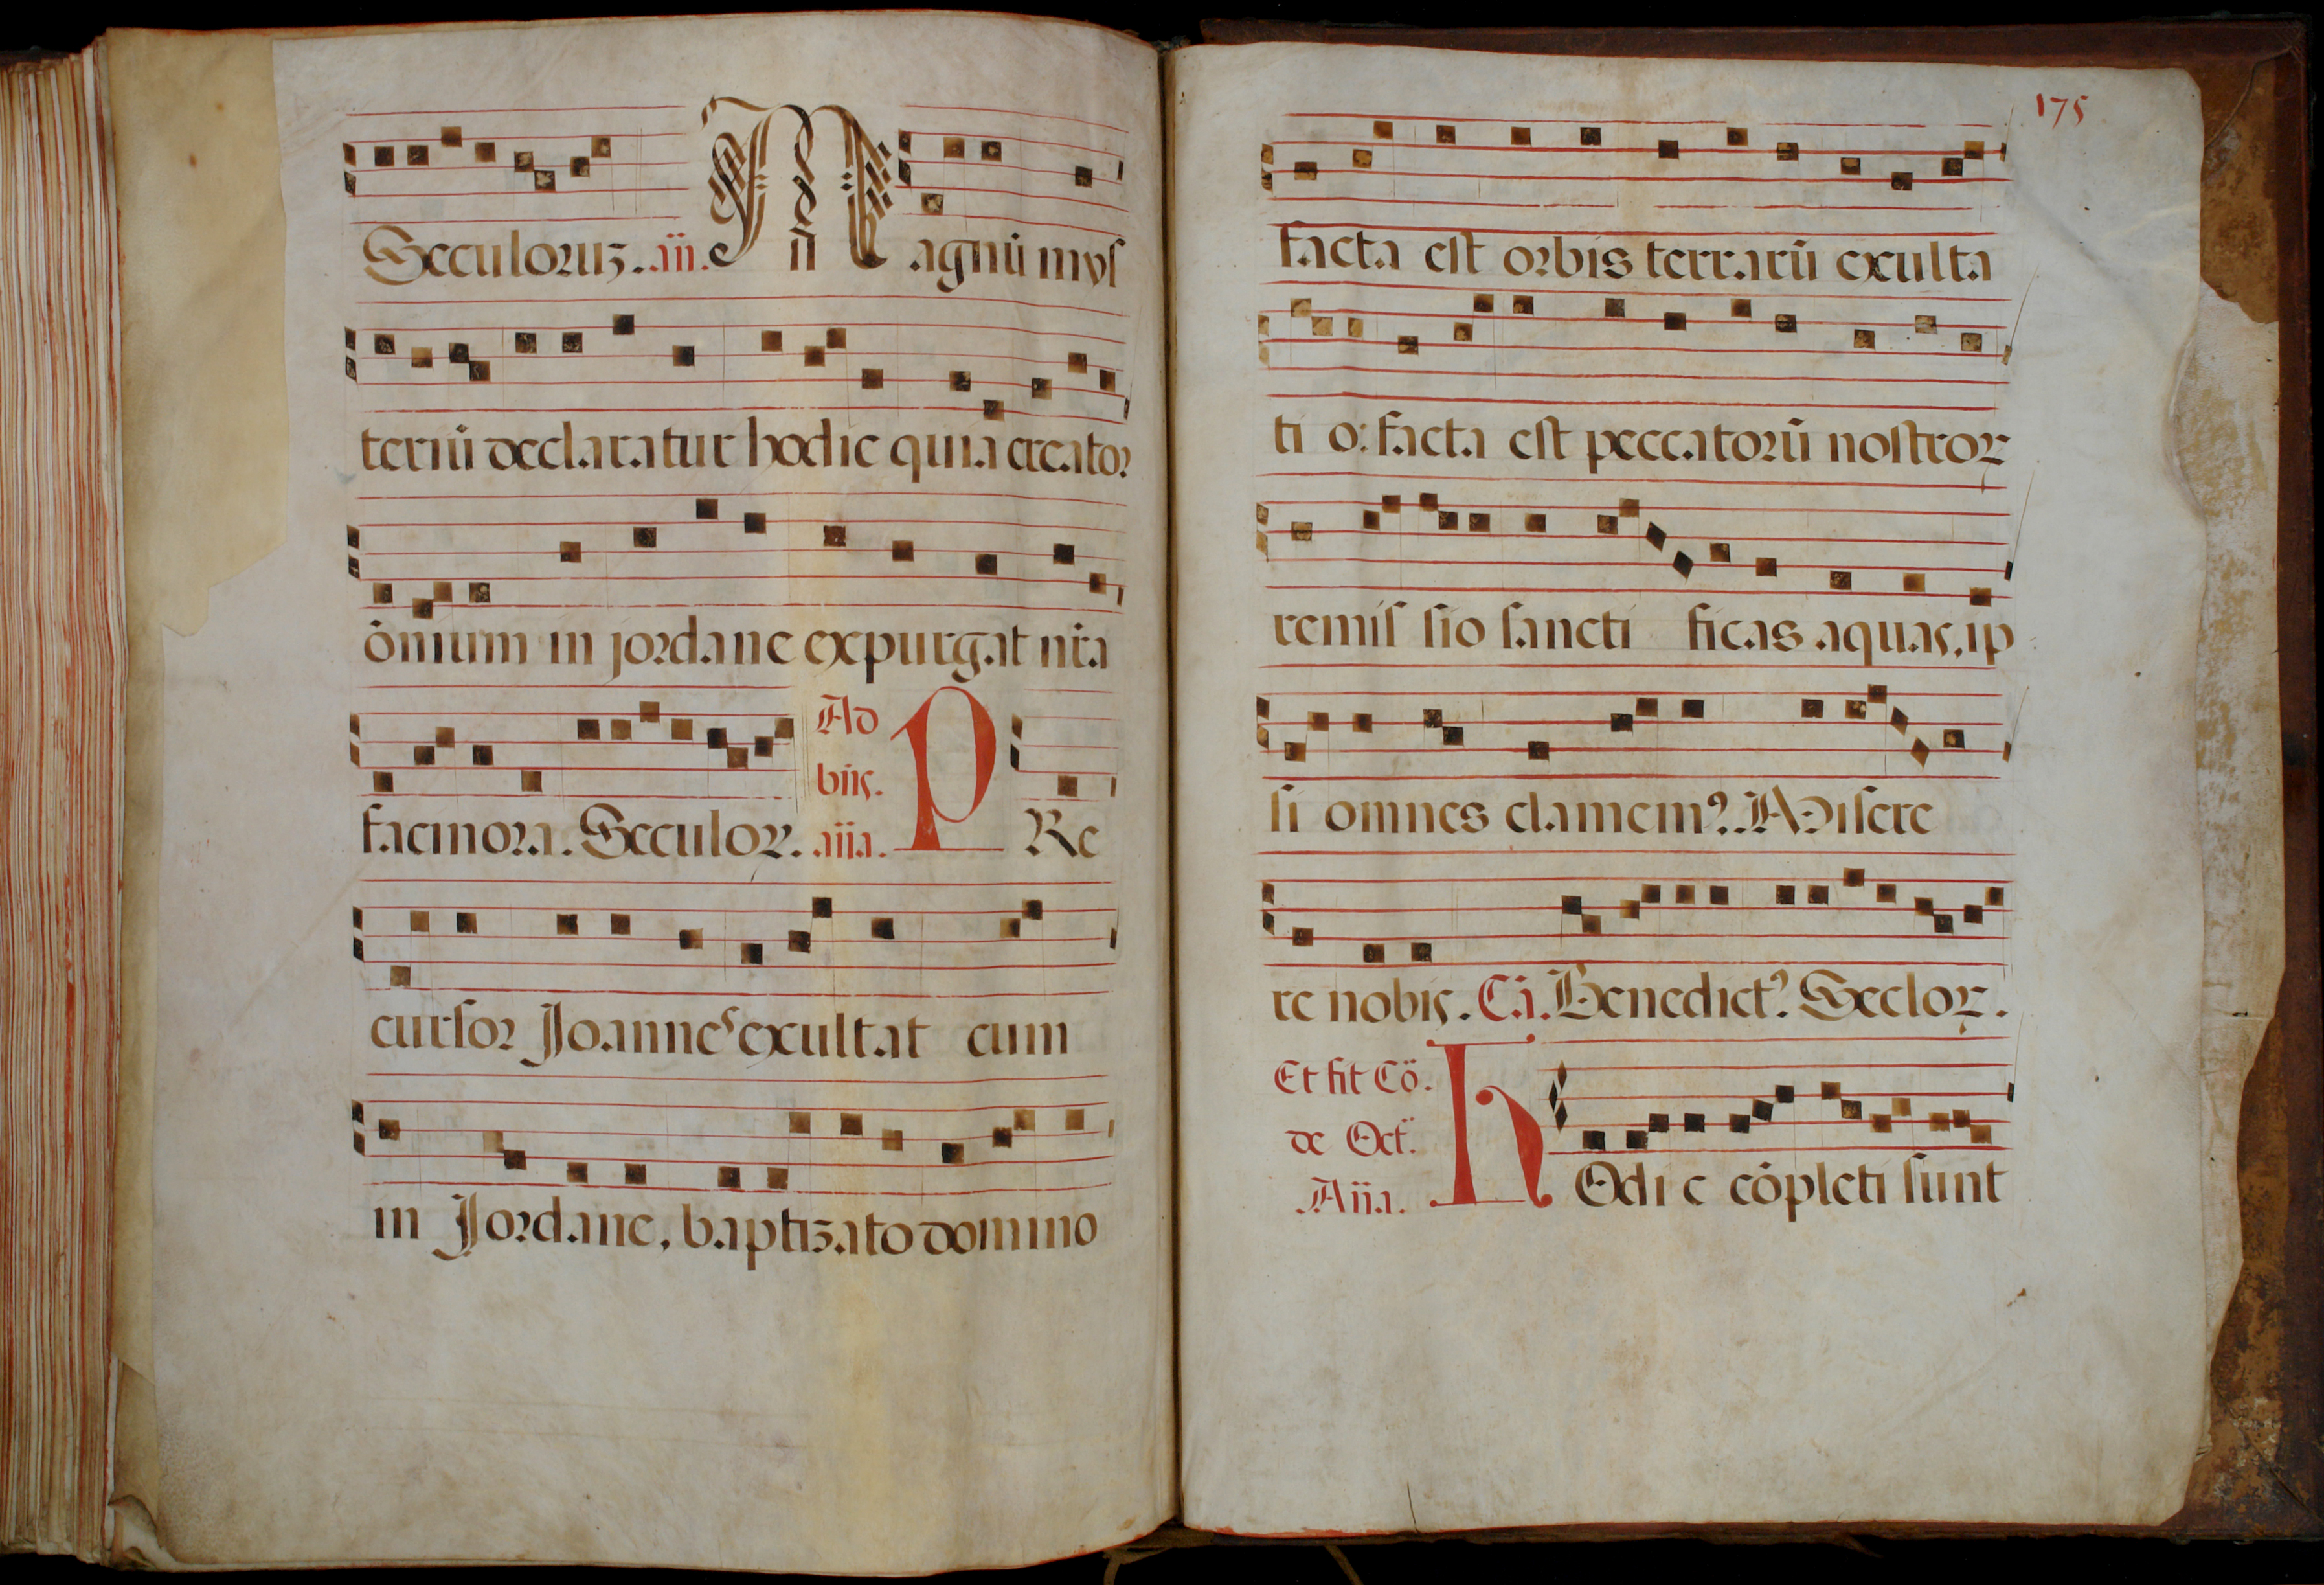 Seculoruz. añ. Magnũ mys
teriũ declaratur hodie quia creator
õmium in jordane expurgat nr̃a
facinora. Seculoꝝ. Ad bñs. aña. PRe
cursor Joannes exultat cum
in Jordane, baptizato domino
175
facta est orbis terrarũ exulta
ti o: facta est peccatorũ nostroꝝ
remis sio sancti ficas aquas, ip
si omnes clamemꝰ. Miserе
re nobis. Cã. Benedictꝰ. Secloꝝ.
Et fit Cõ.
de Oct.
Aña. hOdi e cõpleti sunt